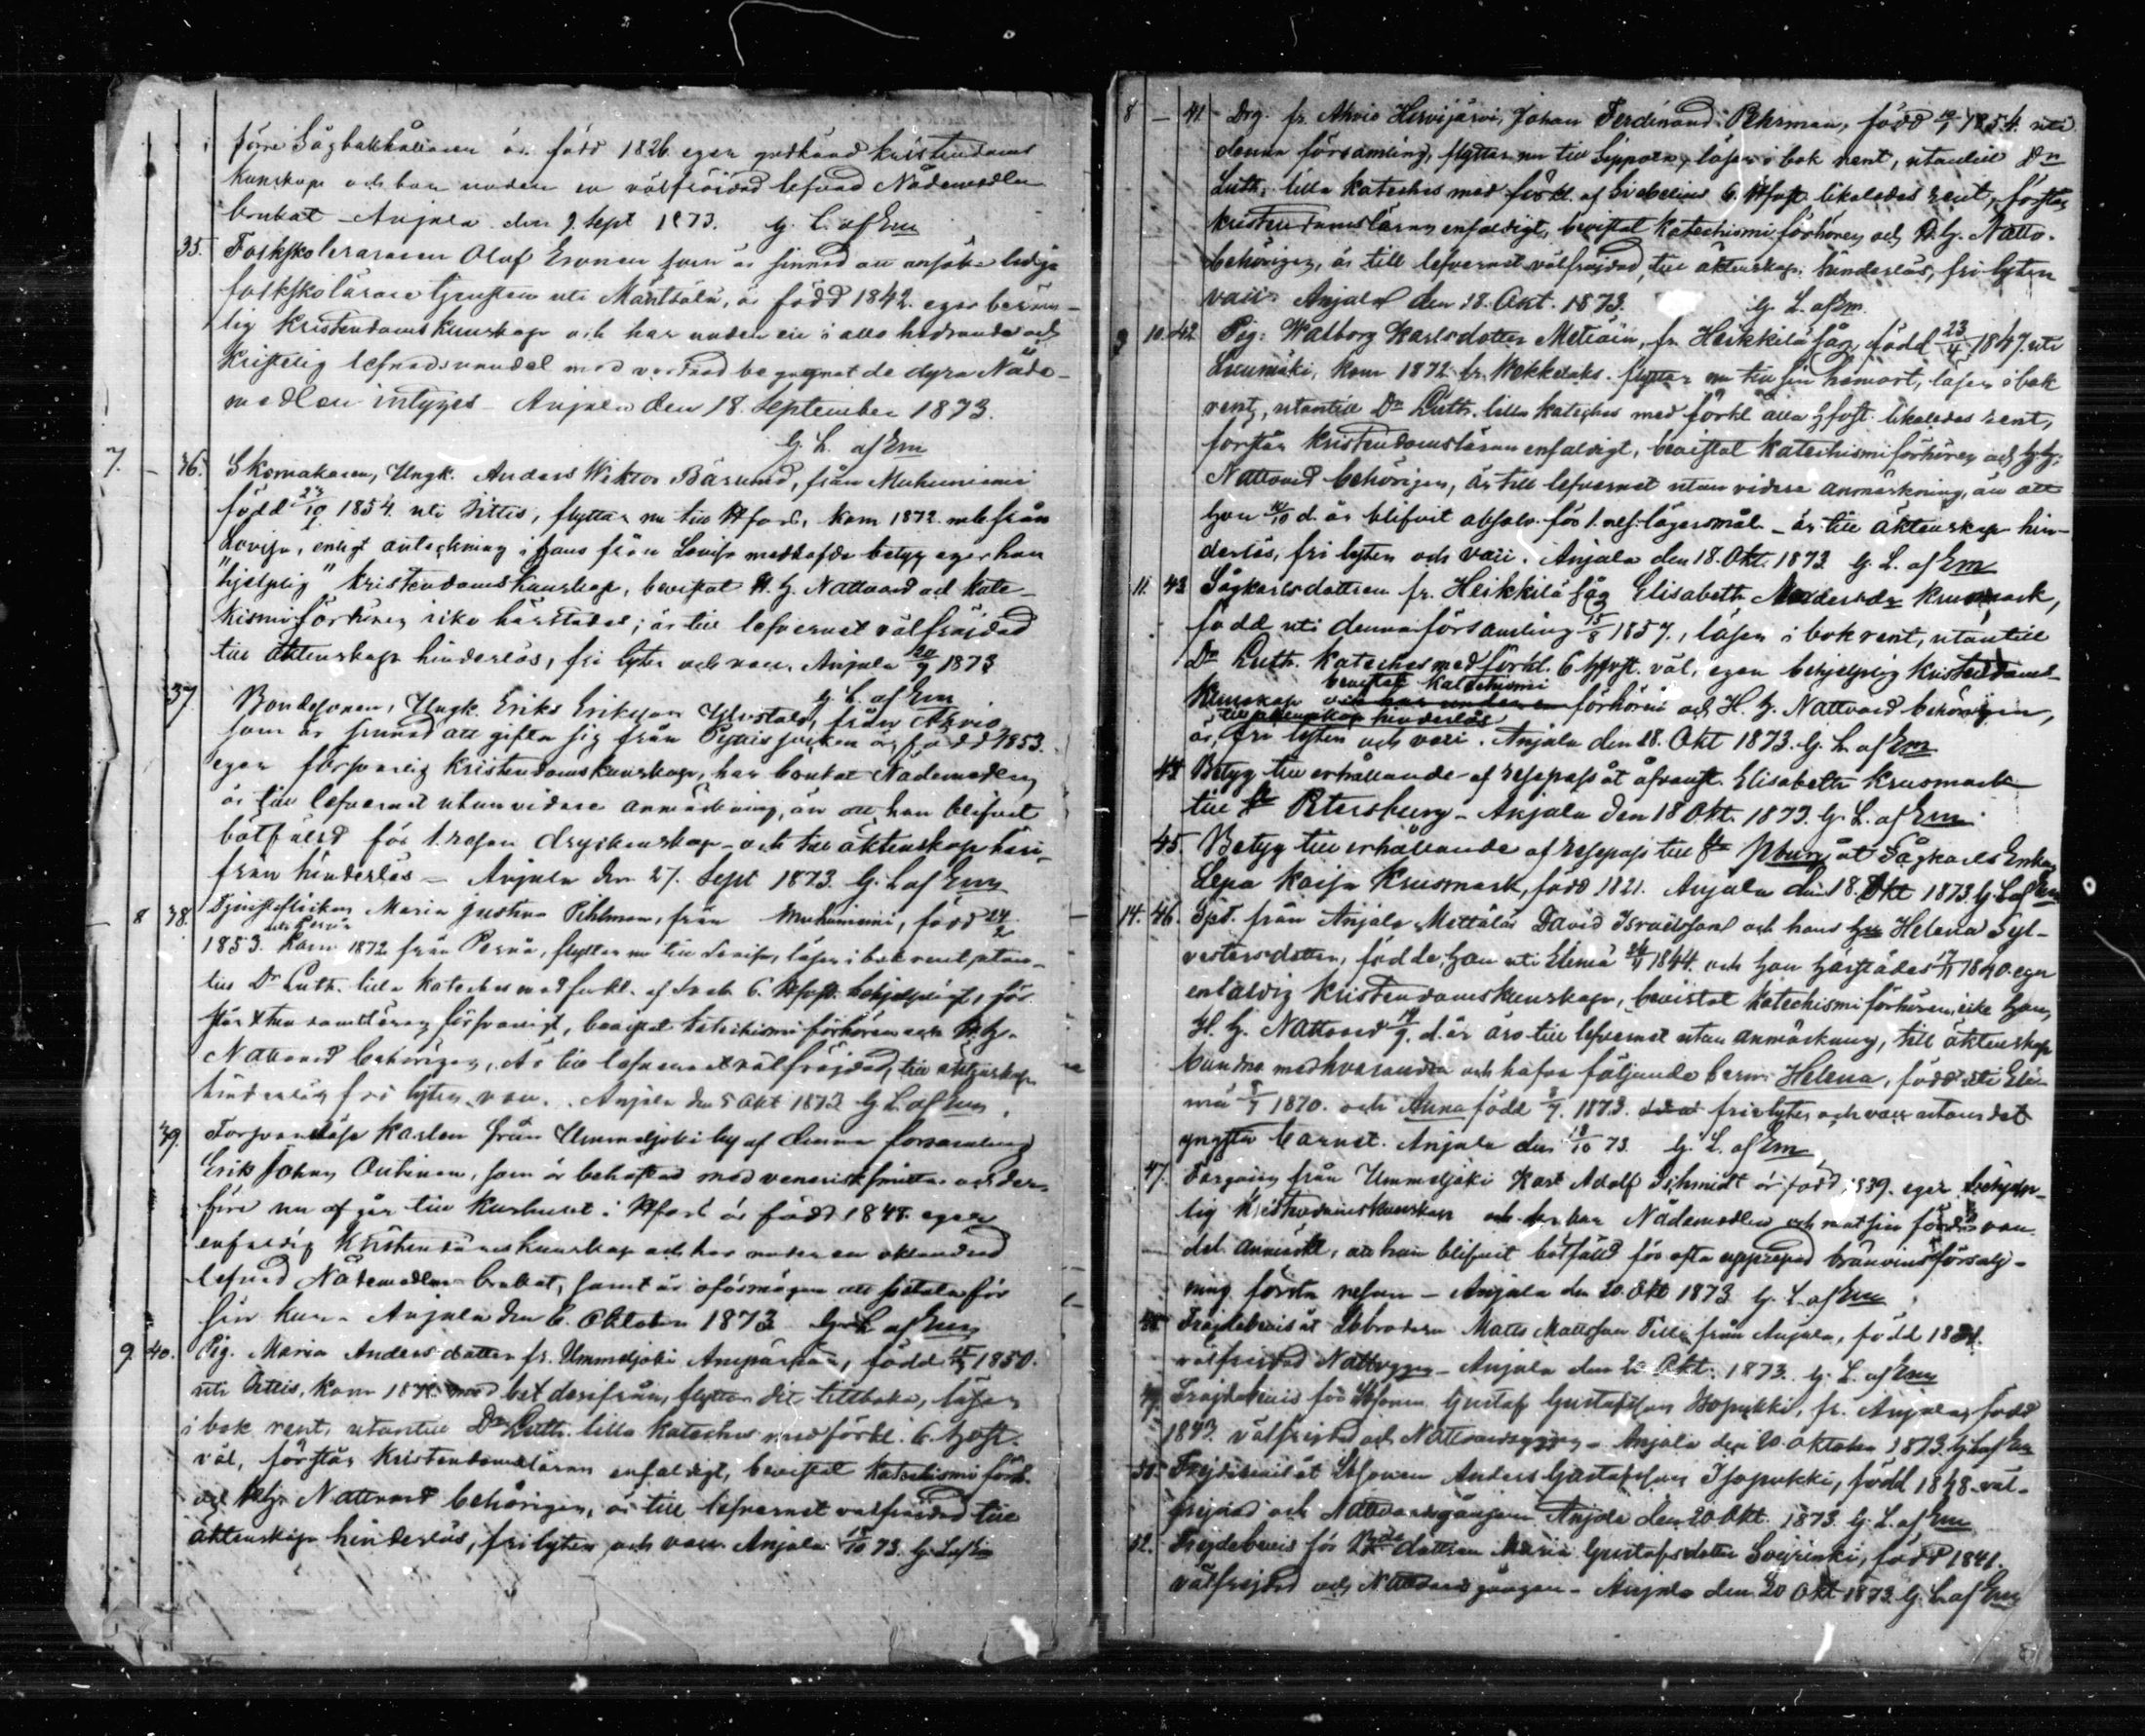 förre Sågbakhållaren är född 1826. eger godkänd kristendoms
kunskap och har under en välfräjdad lefnad Nådemedlen
brukat. Anjala den 9 Sept 1873. G. L. af Em
35. Folkskoleläraren Olof Eronen som är sinnad att ansöka lediga
folkskolärare tjensten uti Mäntsälä, är född 1842. eger beröm-
lig kristendomskunskap och har under en i allo hedrande och
kristelig lefnadsvandel med vördnad begagnat de dyra Nåde-
medlen intygas. Anjala den 18. September 1873.
G. L. af Em
7. — 36. Skomakaren, Ungk. Anders Wiktor Bärlund, från Muhniemi
född 1854. uti Ittis, flyttar nu till Hfors, kom 1872. från
Lovisa, enligt anteckning i hans från Lovisa medhafda betyg eger han
"hjelplig" kristendomskunskap, bevistat H. H. Nattvard och kate-
kismiförhören icke härstädes; är till lefvernet välfräjdad
till äktenskap hinderlös, fri lyten och vacc. Anjala 20/9 1873
G. L. af Em
37. Bondesonen, Ungk. Eriks Eriksson från Ahvio
som är sinnad att gifta sig från Pyttis socken är född 1853.
eger försvarlig kristendomskunskap, har brukat Nådemedlen
är till lefvernet utan vidare anmärkning, än att han blifvit
botfälld för 1. resan dryckenskap och till äktenskap häri-
från hinderlös — Anjala den 27. Sept 1873. G. L. af Em
8 38. Tjensteflickan Maria Justina Pihlman, från Muhniemi, född 24/2
1853. kom 1872 från Perno, flyttar nu till Lovisa, läser i bok rent, utan-
till Dr Luth. lilla kateches med förkl. af Sveb. 6. Hfst. behjelpligt, för
står kristendomsläran försvarligt, bevistat katechismiförhören och H. H.
Nattvard behörigen, är till lefvernet välfräjdad, till äktenskap
hinderlös fri lyten, vacc. Anjala den 5 Okt 1873 G. L. af Em.
39. Torpare karlen från Ummeljoki by af denna församling
Erik Johan Outinen, som är behäftad med venerisk smitta och der-
före nu afgår till kurhuset i Hfors är född 1848. eger
enfaldig kristendomskunskap och har under en oklandrad
lefnad Nådemedlen brukat, samt är oförmögen att betala för
sin kur. Anjala den 6. Oktober 1873 G. L. af Em
9. 40. Pig. Maria Andersdotter fr. Ummeljoki, född 1850.
uti Ittis, kom 187 med bet derifrån, flyttar dit tillbaka, läser
i bok rent, utantill Dr Luth. lilla kateches med förkl. 6. Hfst.
väl, förstår kristendomsläran enfaldigt, bevistat katechismi förh.
och H. H. Nattvard behörigen, är till lefvernet välfräjdad till
äktenskap hinderlös, fri lyten och vacc. Anjala 18/10 73. G. L. af Em
8 — 41. Drg. fr. Ahvio Hirvijärvi, Johan Ferdinand Pehrman, född 10/1 1854. uti
denna församling, flyttar nu till Sippola, läser i bok rent, utantill Dr
Luth. lilla kateches med förkl. af Svebelius 6. Hfst likaledes rent, förstår
kristendomsläran enfaldigt, bevistat katechismiförhören och H. H. Nattv.
behörigen, är till lefvernet välfräjdad, till äktenskap hinderlös, fri lyten
vacc. Anjala den 18. Okt. 1873. G. L. af Em.
9 10. 42 Pig: Walborg Karlsdotter Metiäin, fr. Heikkilä såg, född 23/4 1847. uti
Luumäki, kom 1872 fr. Wekkelaks. flyttar nu till sin hemort, läser i bok
rent, utantill Dr Luth. lilla kateches med förkl alla Hfst. likaledes rent,
förstår kristendomsläran enfaldigt, bevistat katechismiförhören och H. H.
Nattvard behörigen, är till lefvernet utan vidare anmärkning, än att
hon /10 d. år blifvit absolv. för 1. res. lägersmål — är till äktenskap hin-
derlös, fri lyten och vacc. Anjala den 18. Okt. 1873 G. L. af Em
11. 43 Sågkarlsdottren fr. Heikkilä såg Elisabeth Andersdr Krusmark,
född uti denna församling 15/8 1857., läser i bok rent, utantill
Dr Luth. kateches med förkl. 6 Hfst. väl, eger behjelplig kristendoms-
bevistat katechismi
kunskap och har under en förhören och H. H. Nattvard behörigen,
till äktenskap hinderlös
är, fri lyten och vacc. Anjala den 18. Okt 1873. G. L. af Em
44 Betyg till erhållande af respass åt åfvanst. Elisabeth Krusmark
till St Petersburg — Anjala den 18 Okt. 1873. G. L. af Em
45. Betyg till erhållande af respass till St Pburg åt Sågkarls Enkan
Lena Kaisa Krusmark, född 1821. Anjala den 18. Okt 1873. G. L. af Em
14. 46. Spst. från Anjala Mettälä David Israelsson och hans hu Helena Syl-
vestersdotter, födde, han uti Elimä 1844. och hon härstädes 1840. eger
enfaldig kristendomskunskap, bevistat katechismiförhören, icke han,
H. H. Nattvard 14/9. d. år äro till lefvernet utan anmärkning, till äktenskap
bundne med hvarandra och hafva följande barn: Helena, född uti Eli-
mä 1870. och Anna född 1873. fri lyten och vacc utom det
yngsta barnet. Anjala den 18/10 73. G. L. af Em
47. Torparen från Ummeljoki Karl Adolf Schmidt är född 1839. eger behjelp-
lig kristendomskunskap och har Nådemedlen och
del. anmärkt, att han blifvit botfälld för ofta upprepad brännvinsförsälj-
ning första resan — Anjala den 20. Okt 1873 G. L. af Em
48. Frejdebevis åt Bbrodern Matts Mattsson Tilli från Anjala, född
välfrejdad Nattvgn — Anjala den 20 Okt. 1873. G. L. af Em
49. Frejdebevis för Bsonen Gustaf Gustafsson Isopukki, fr. Anjala, född
1843. välfrejdad och Nattvardsg. — Anjala den 20 Oktober 1873. G. L. af Em
50. Frejdebevis åt Bsonen Anders Gustafsson Isopukki, född 1848. väl-
frejdad och Nattvardsgången. Anjala den 20. Okt. 1873. G. L. af Em
52. Frejdebevis för Bdedottren Maria Gustafsdotter, född 1841.
välfrejdad och Nattvardsgången — Anjala den 20 Okt 1873. G. L. af Em